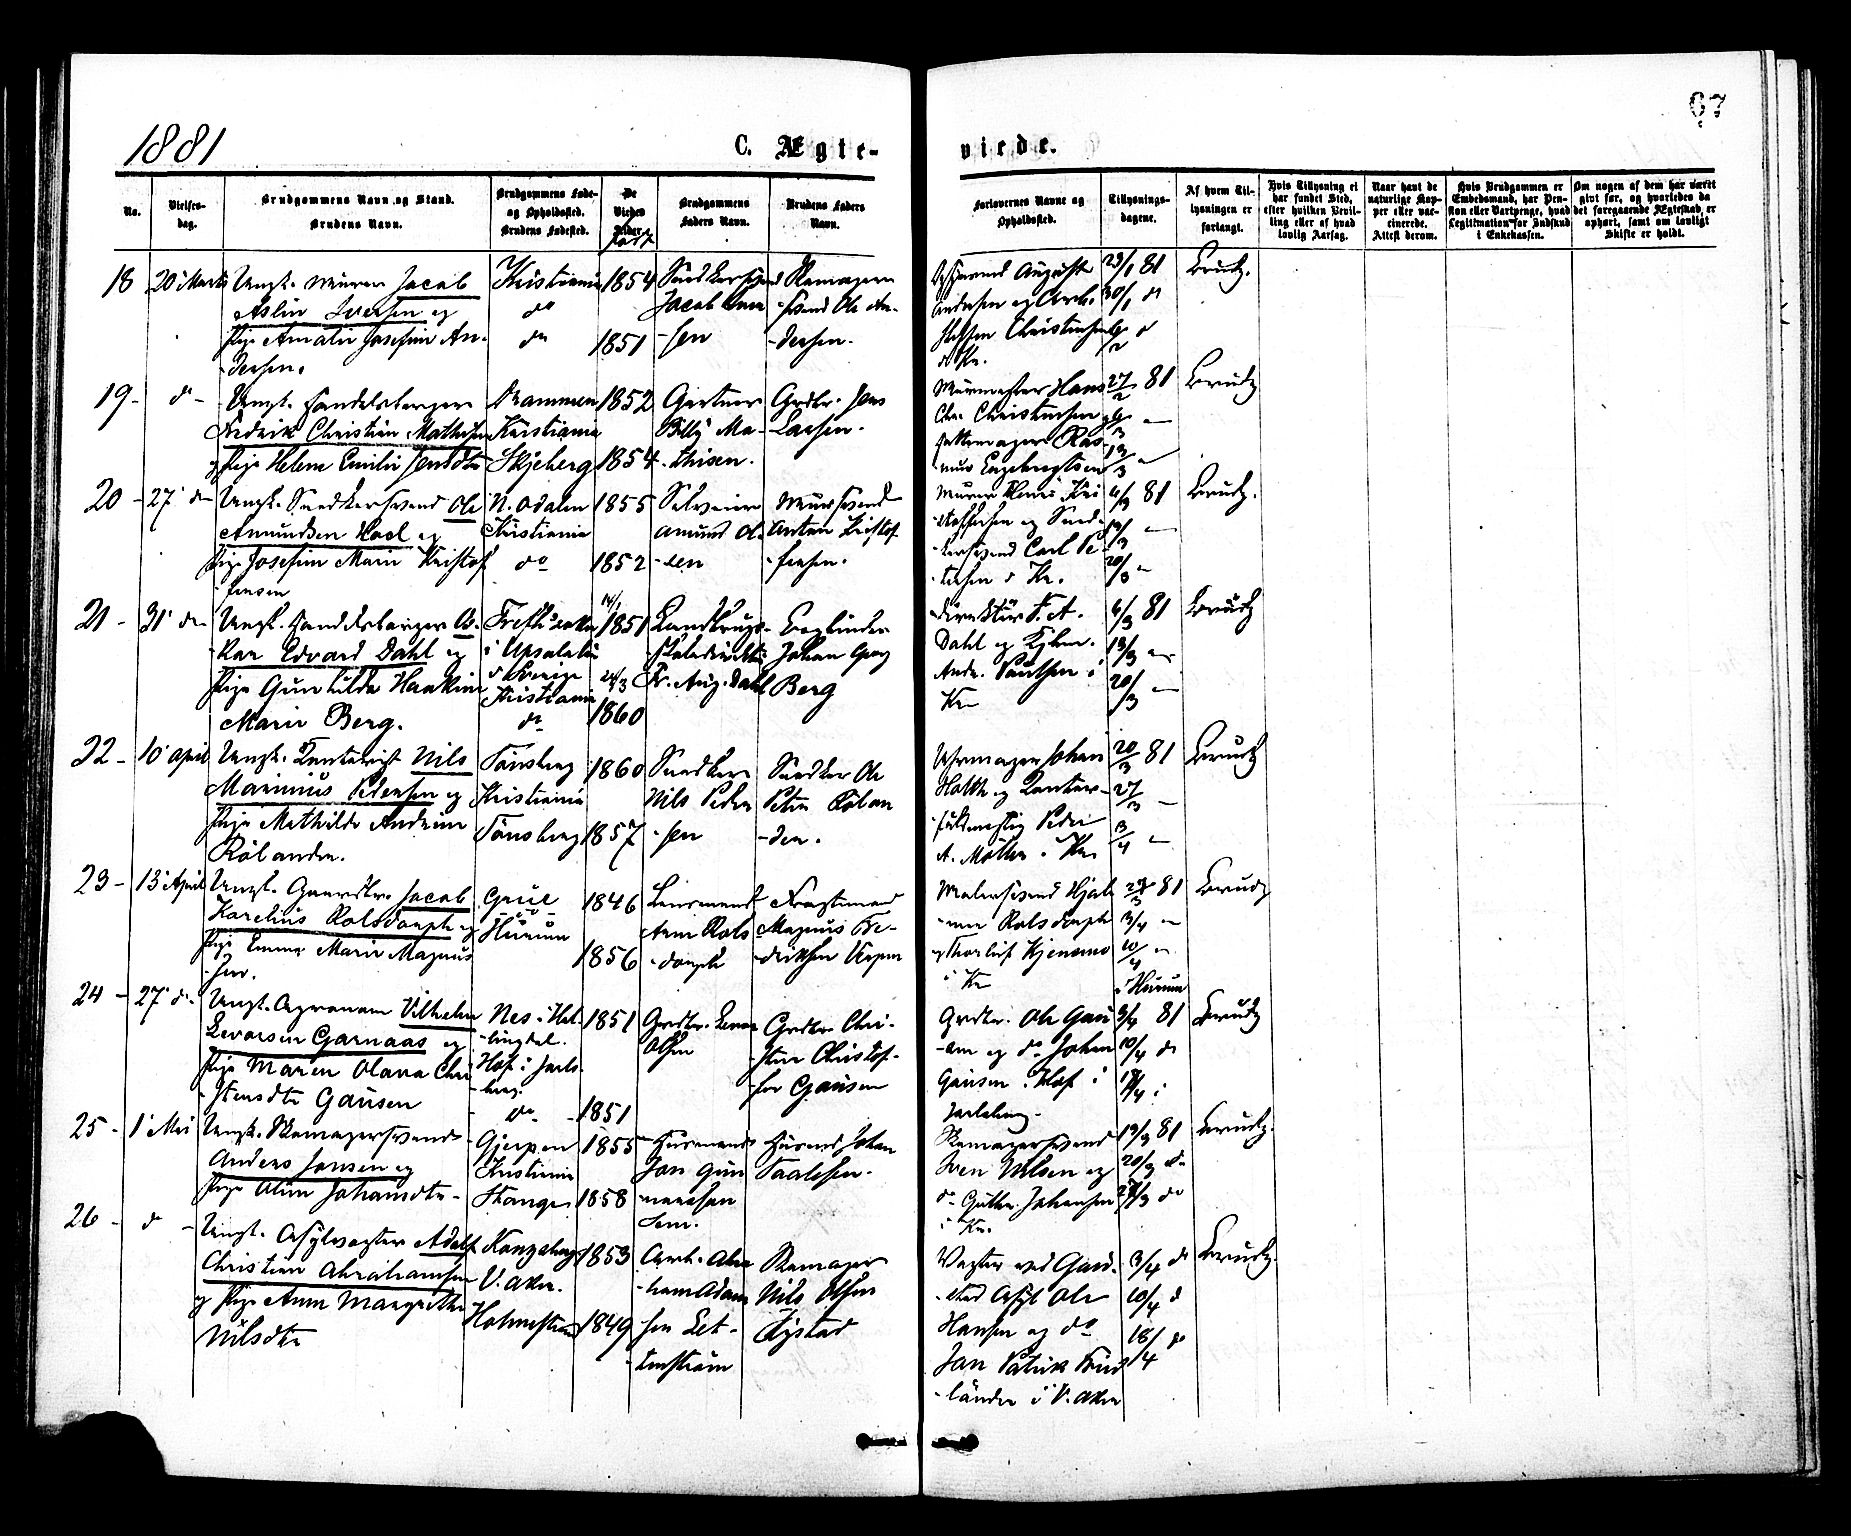 97
1881
C. Ægte-
viede.
No.
Vielses-
dag.
Brudgommens Navn og Stand.
Brudens Navn.
Brudgommens Føde-
og Opholdssted.
Brudens Fødested.
De
Viedes
Alder
født
Brudgommens
Faders Navn.
Brudens Faders
Navn.
Forlovernes Navne og
Opholdssted.
Tillysnings-
dagene.
Af hvem Til-
lysningen er
forlangt.
Hvis Tillysning ei
har fundet Sted,
efter hvilken Bevil-
ling eller af hvad
lovlig Aarsag.
Naar havt de
naturlige Kop-
per eller vac-
cinerede.
Attest derom.
Hvis Brudgommen er
Embedsmand, har Pen-
sion eller Vartpenge, hvad
Legitimation for Indskud
i Enkekassen.
Om nogen af dem har været
gift før, og hvorledes da
det foregaaende Ægteskab er
ophørt, samt om lovligt
Skifte er holdt.
18 20 Marts Ungk. Murer Jacob
Aslin Iversen og
Pige Amalie Josefine An-
dersen.
Kristiania
do
do
1854
1851
Jacob Iver
-sen
Skomager
-svend Ole An-
-dersen.
August
Andersen og Arb.
Christensen
i Kr.
23/1 81
30/1 do
6/2 do
Brudg.
19- do - Ungk. Handelsborger
Fredrik Christian Mathisen
og Pige Helene Emilie Jensdtr
Drammen
Kristiania
Skjeberg
1852
1854
Gartner
Billy Ma-
-thisen.
Grdbr. Jens
Larsen.
Murmester Hans
Chr. Christensen og
Ras-
mus Engebregtsen
27/2 81
6/3 -
13/3 -
Brudg
20 - 27 do Ungk. Snedkersvend Ole
Amundsen Hoel og
Pige Josefine Marie Kristof
fersen
N. Odalen
Kristiania
do
1855
1852
Selveier
Amund Ol-
-sen
Mursvend
Anton Kristof
-fersen.
Murer
-stoffersen og Sned-
-kersvend Carl Pe-
-tersen i Kr.
6/3 81
13/3 -
20/3 -
Brudg.
21 - 31 do Ungk. Handelsborger Os-
-kar Edvard Dahl og
Pige Gunhilda Haakine
Marie Berg.
i Upsala
i Sverige
Kristiania
do
14/1
1851
24/3
1860
Landbrugs-
Fr. Aug. Dahl
Bogbinder
Johan Georg
Berg
Direktør F. A.
Dahl og Kjbm.
Andr. Poulsen i
Kr
6/3 81
13/3 -
20/3 -
Brudg
22 - 10 April Ungk. Kontorist Nils
Marinius Pedersen og
Pige Mathilde Andrine
Rølandn.
Tønsberg
Kristiania
Tønsberg
1860
1857
Snedker
Nils Peder
-sen
Snedker Ole
Peter Rølan
-der.
Uhrmager Johan
Holth og Kontor-
-fuldmægtig Peder
A. Møller i Kr
20/3 81
27/3 -
3/4 -
Brudg
23 - 13 April Ungk. Gaardbr. Jacob
Karelius Rolsdorph og
Pige Emma Marie Magnus
-sen.
Grue
do
Hurum
1846
1856
Lensmand
Arne Rols
-dorph
Fragtmand
Magnus Fre-
-driksen
Malersvend Hjal-
-mar Rolsdorph
og Thorleif Kjensmo
i Kr
27/3 81
3/4 -
10/4 -
i Hurum
Brudg
24 - 27 do Ungk. Agronom Vilhelm
Levorsen Garnaas og
Pige Maren Olava Chri
-stensdtr Gausen
Nes i Hal-
-lingdal.
Hof i Jarls-
-berg.
do
1851
1851
Grdbr. Levor
Olsen
Grdbr. Chri-
-sten Christof-
-fer Gausen
Grdbr. Ole Gau
-sen og do Johan
Gausen i Hof i
Jarlsberg.
3/4 81
10/4 do
18/4 i
Brudg
25 - 1 Mai Ungk. Skomagersvend
Anders Jansen og
Pige Oline Johansdtr.
Gjerpen
Kristiania
Stange
1855
1858
Husmand
Jan Gun
-narsen
Husmd Johan
Paalssen.
Skomagersvend
Sven Nilsen og
do Guttor. Johansen
i Kr.
13/3 81
20/3 do
27/3 do
Brudg.
26 - do - Ungk. Asylvogter Adolf
Christian Abrahamsen
og Pige Anne Margrethe
Nilsdtr
Kongsberg
V. Aker.
Holmestrand
1853
1849
Arb. Abra
-ham Adam
-sen Let-
-tenstrøm
Skomager
Nils Olsen
Vogter ved Gau-
-stad Asyl Ole
Hansen og do
Jan Patrik Frid
-länder i V. Aker
3/4 do
10/4 do
18/4 do
Brudg.